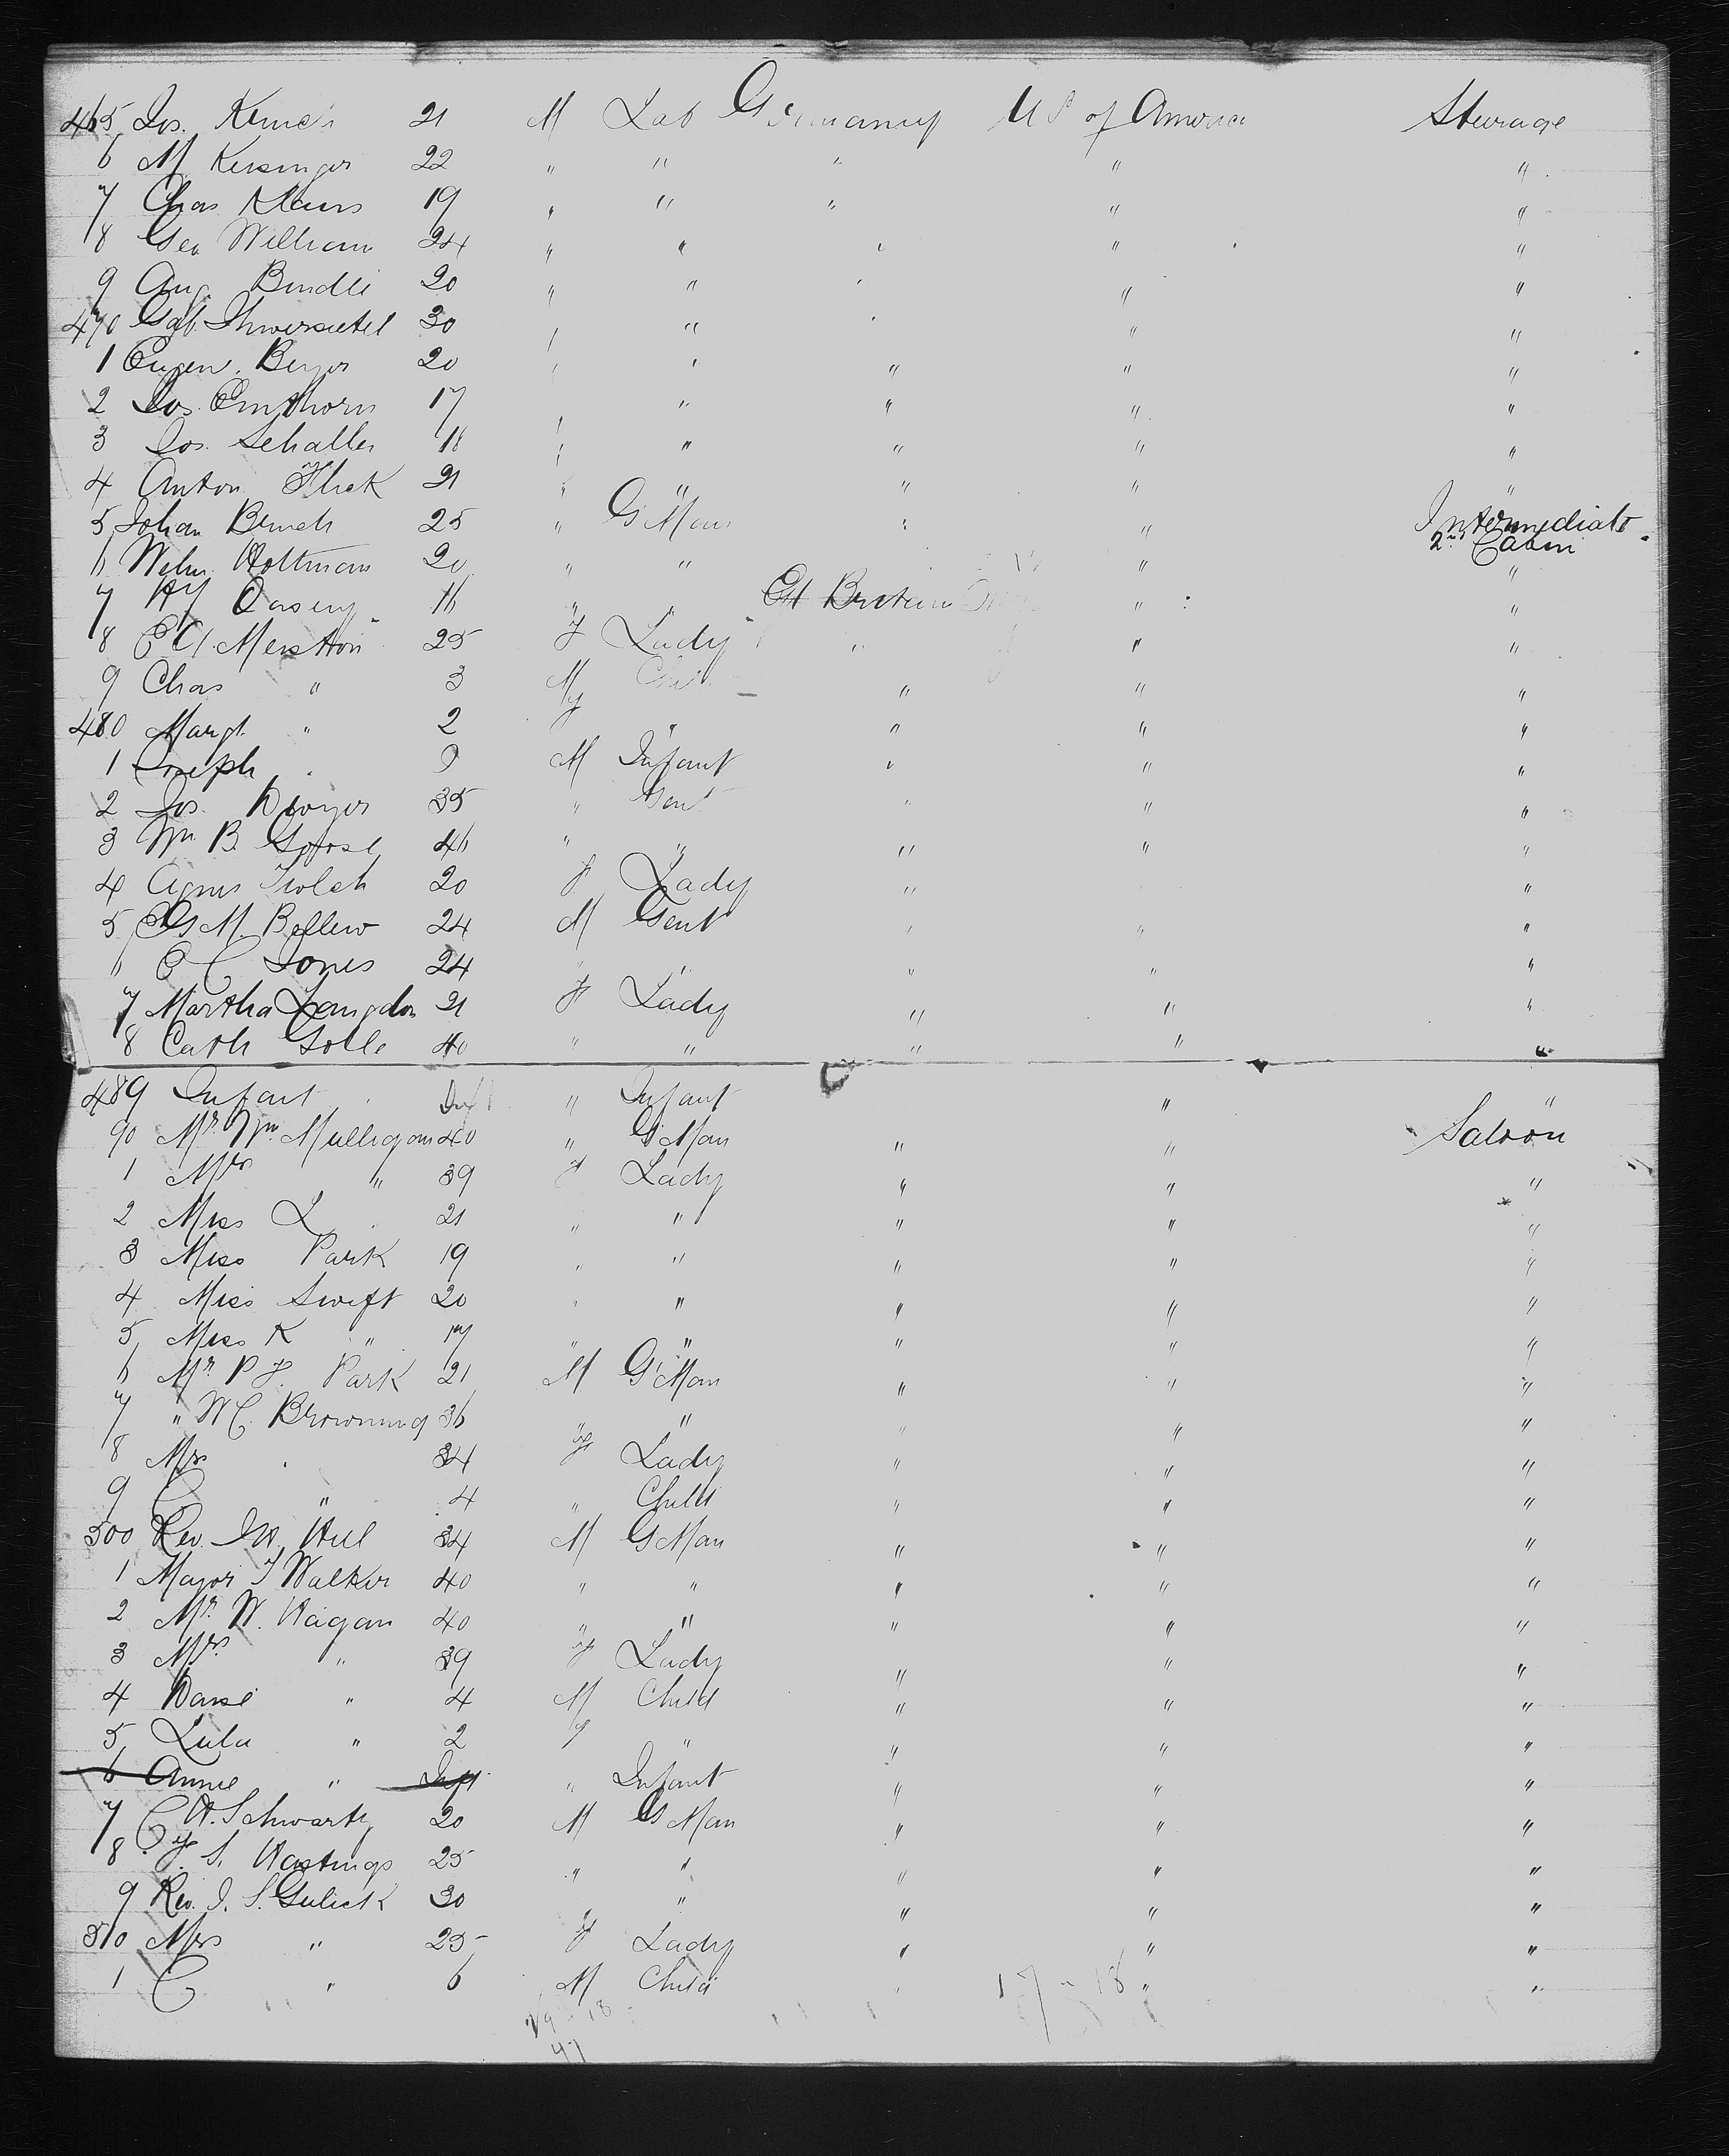 465 Jos. 21 M Lab Germany US of America Steerage
6 M. Kersinger 22 " " " " "
7 Chas Klaus 19 " " " " "
8 Geo William 24 " " " " "
9 Aug. Bindli 20 " " " " "
470 Gab. 30 " " " " "
1 Eugen. Beyer 20 " " " " "
2 Jos. Emthorn 17 " " " " "
3 Jos. Schaller 18 " " " " "
4 Anton Flick 21 " " " " "
5 Johan Bruch 25 " G Man " " Intermediate
2nd Cabin
6 Welm. Holtman 20 " " " "
7 Hy Casey 16 " " Gt Britain " "
8 E A Merston 25 F Lady " " "
9 Chas " 3 M Child " " "
480 Margt " 2 F " " " "
1 Joseph " 9 M Infant " " "
2 Jos. Dwyer 35 " Gent " " "
3 Wm B. 46 " " " " "
4 Agnes 20 F Lady " "
5 G M. Bellew 24 M Gent " " "
6 E C Jones 24 " " " " "
7 Martha Langdon 21 F Lady " " "
8 Cath Golle 40 " " " " "
489 Infant " Inft " Infant " "
90 Mr. Wm. Mulligan 40 " G Man " " Saloon
1 Mrs " 39 F Lady " " "
2 Miss L " 21 " " " " "
3 Miss Park 19 " " " " "
4 Miss Swift 20 " " " " "
5 Miss K " 17 " " " " "
6 Mr. P F. Park 21 M G Man " " "
7 " W C. Browning 36 " " " " "
8 Mrs " 34 F Lady " " "
9 C " 4 " Child " " "
500 Rev. J W. Hill 34 M G Man " " "
1 Major T Walker 40 " " " " "
2 Mr. W. Hagan 40 " " " " "
3 Mrs " 39 F Lady " " "
4 " 4 M Child " " "
5 Lulu " 2 F " " " "
6 Annie " Inft " Infant " " "
7 C H. Schwartz 20 M G Man " " "
8 F. S. Hastings 25 " " " " "
9 Rev. J. S. Gulick 30 " " " " "
510 Mrs " 25 F Lady " " "
1 C " 6 M Child " " "
17 - 18
29 - 18
47